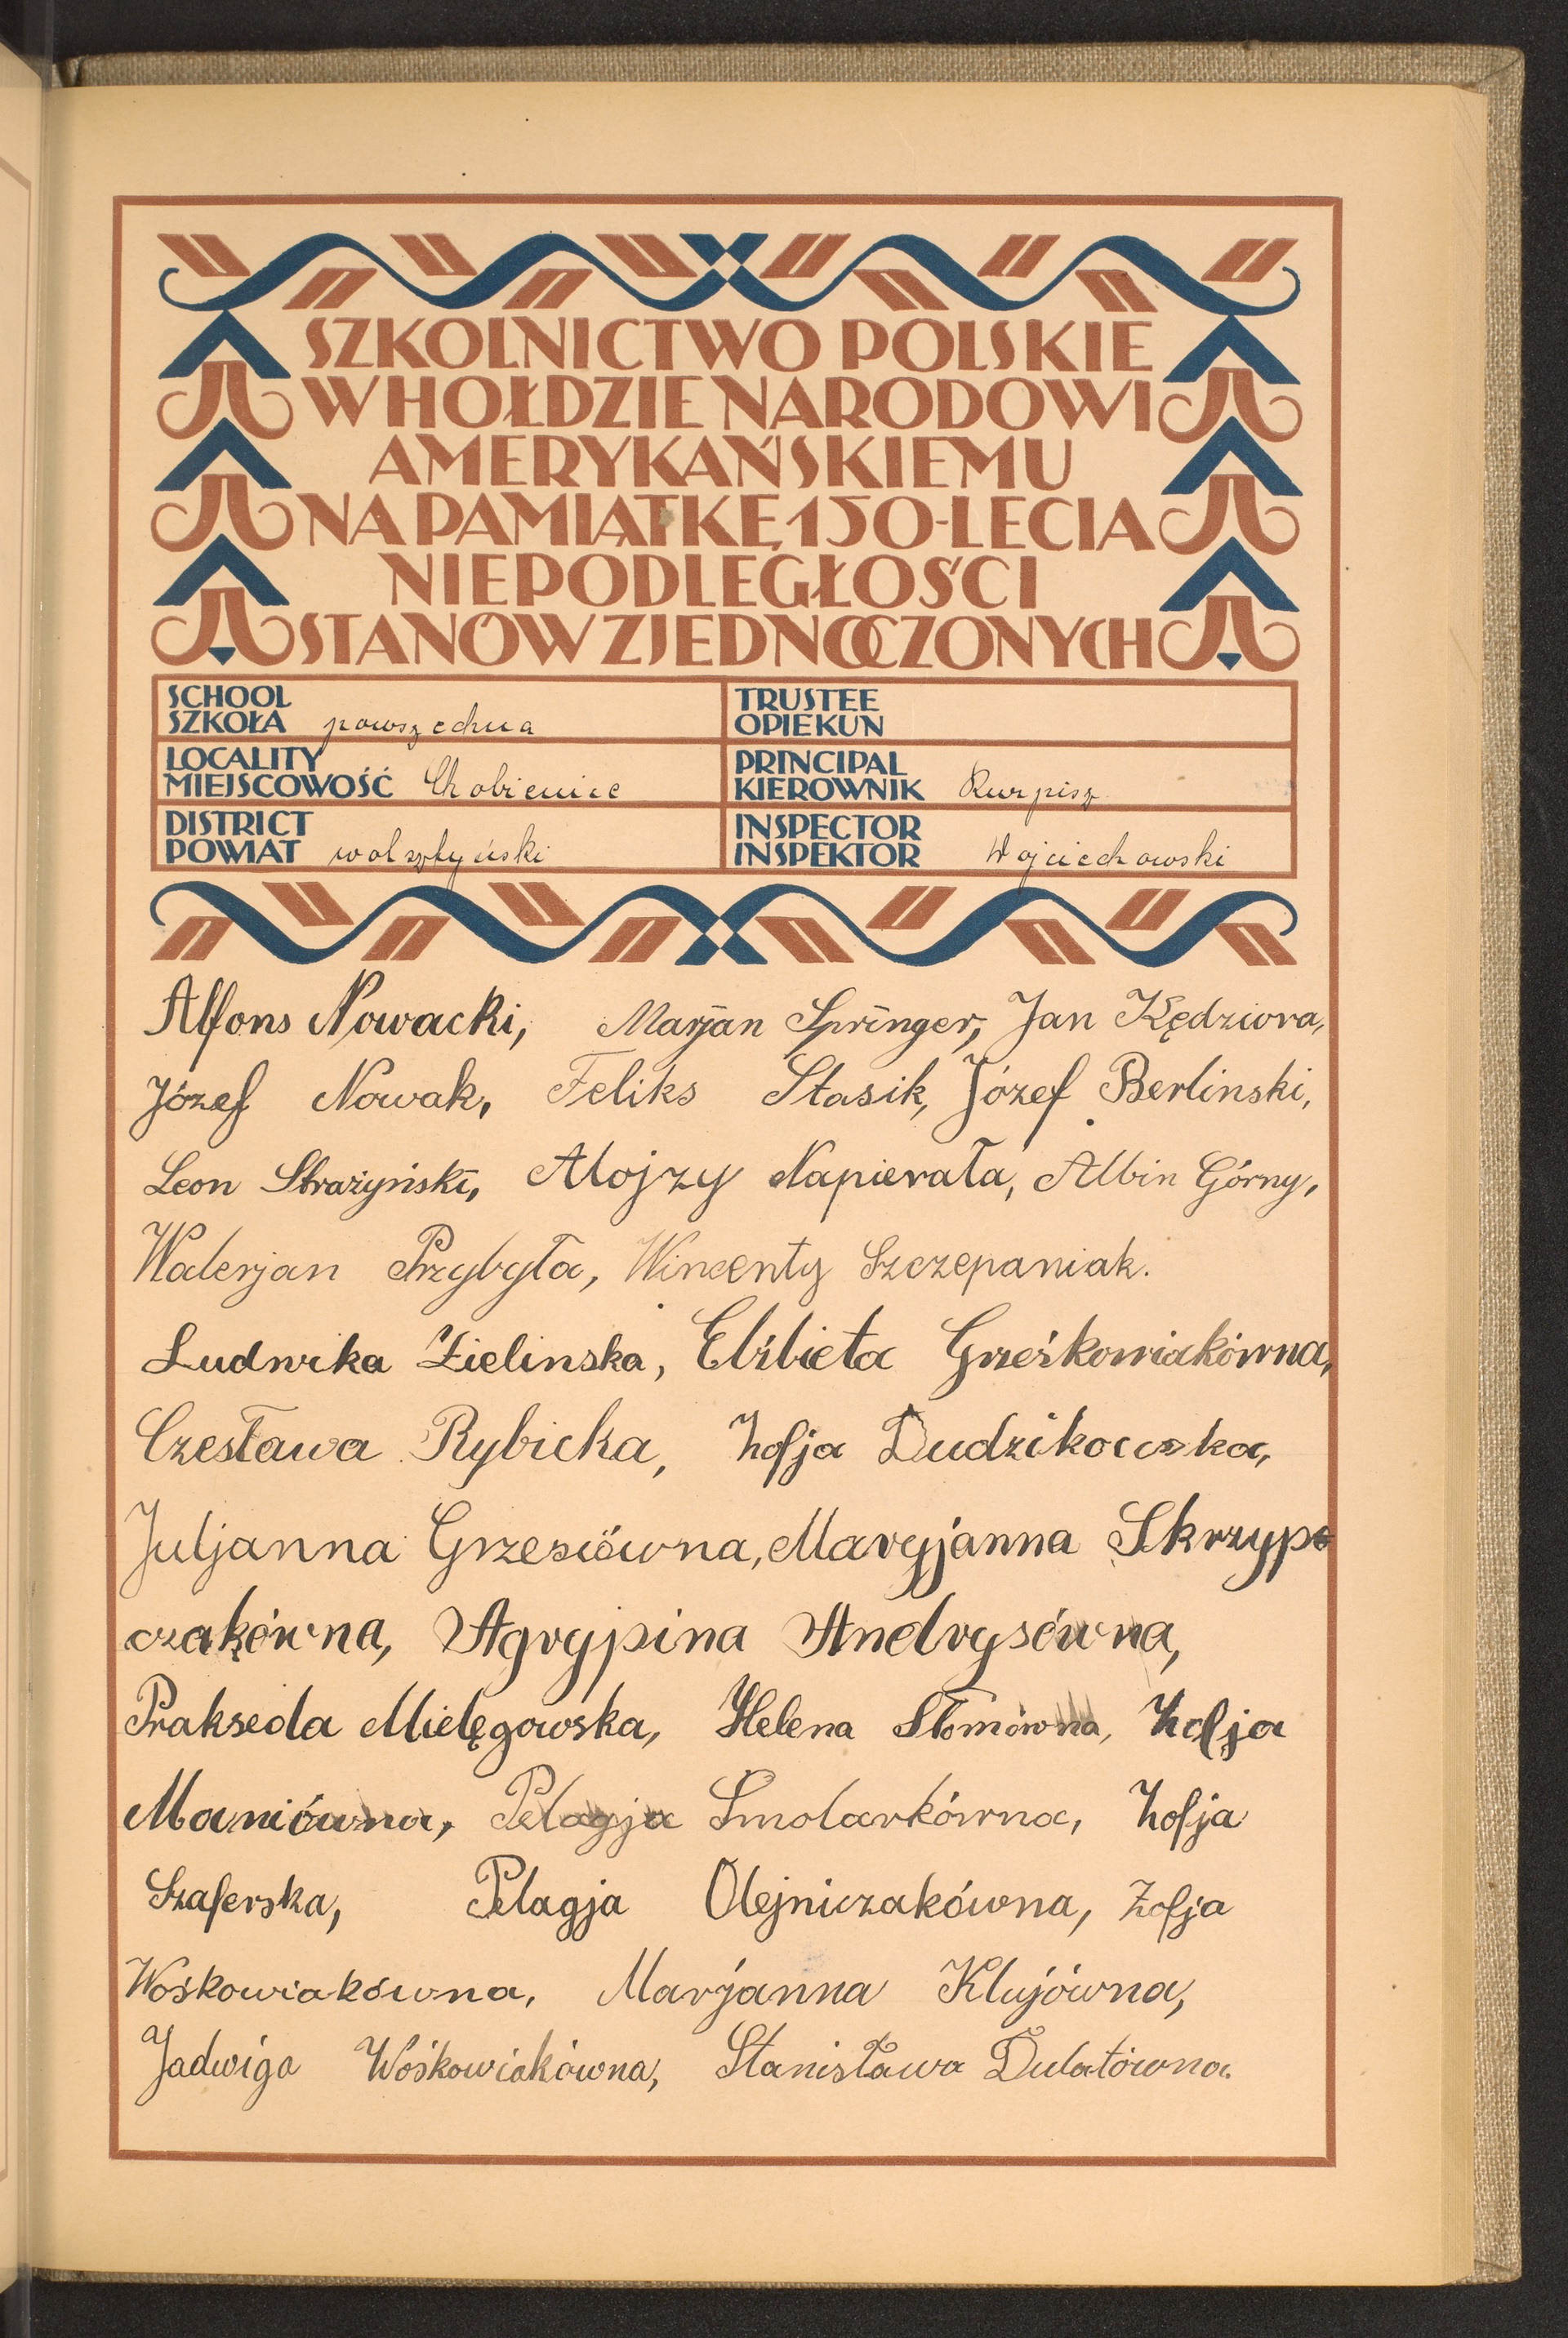 SZKOLNICTWO POLSKIE
W HOŁDZIE NARODOWI
AMERYKAŃSKIEMU
NA PAMIĄTKĘ 150-LECIA
NIEPODLEGŁOŚCI
STANÓW ZJEDNOCZONYCH
SCHOOL
SZKOŁA powszechna
TRUSTEE
OPIEKUN
LOCALITY
MIEJSCOWOŚĆ Chobienice
PRINCIPAL
KIEROWNIK Kurpisz
DISTRICT
POWIAT wolsztyński
INSPECTOR
INSPEKTOR Wojciechowski
Alfons Nowacki, Marjan Springer, Jan Kędziora,
Józef Nowak, Feliks Stasik, Józef Berlinski,
Leon Strażyński, Alojzy Napierała, Albin Górny,
Walerjan Przybyła, Wincenty Szczepaniak.
Ludwika Zielinska, Elżbieta Grześkowiakówna,
Czesława Rybicka, Zofja Dudzikowska,
Juljanna Grzesiówna, Maryjanna Skrzyp
czakówna, Agrypina Andrysówna,
Prakseda Mielęgowska, Helena Słomówna, Zofja
Maniówna, Pelagja Smolarkówna, Zofja
Szaferska, Pelagja Olejniczakówna, Zofja
Wośkowiakówna, Marjanna Klujówna,
Jadwiga Wośkowiakówna, Stanisława Dulatówna.